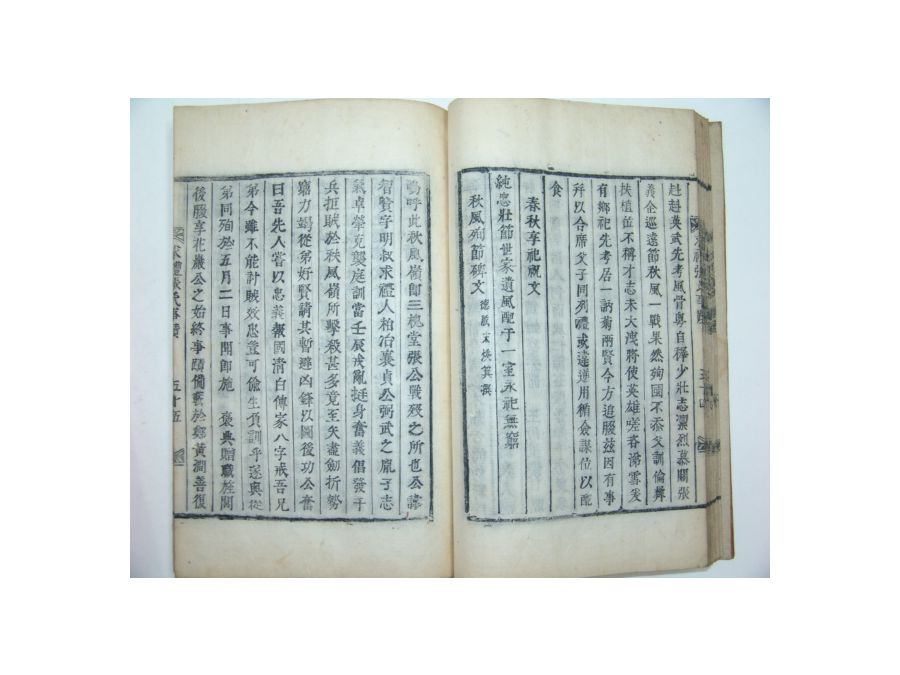 赳赳英武先考風骨粤自稺少壯志凜烈慕關張
義企巡遠節秋風一戰果然殉國不忝父訓倫彛
扶植並不稱才志未大洩將使英雄嗟吞涕雪發
有鄕祀先考居一訥菊兩賢今方追服玆因有事
幷以合席父子同列禮或違進用稍僉謀位以配
食
春秋享祀祝文
純忠壯節世家遺風配于一室永祀無窮
秋風殉節碑文 德殷宋煥箕撰
嗚呼此秋風嶺卽三槐堂張公戰歿之所也公諱
智賢字明叔求禮人柏冶襄貞公弼武之胤子志
氣卓犖克襲庭訓當壬辰戎亂挺身奮義倡發子
兵拒賊於秋風嶺所擊殺甚多竟至矢盡劍折勢
窮力竭從弟好賢請其暫避凶鋒以圖後功公奮
曰吾先人嘗以忠義報國淸白傳家八字戒吾兄
弟今雖不能討賊效忠豈可偸生負訓乎遂與從
弟同殉於五月二日事聞卽施 褒典贈職旌閭
後腏享花巖公之始終事蹟備載於鄭黃澗善復
求禮張氏事蹟 五十五